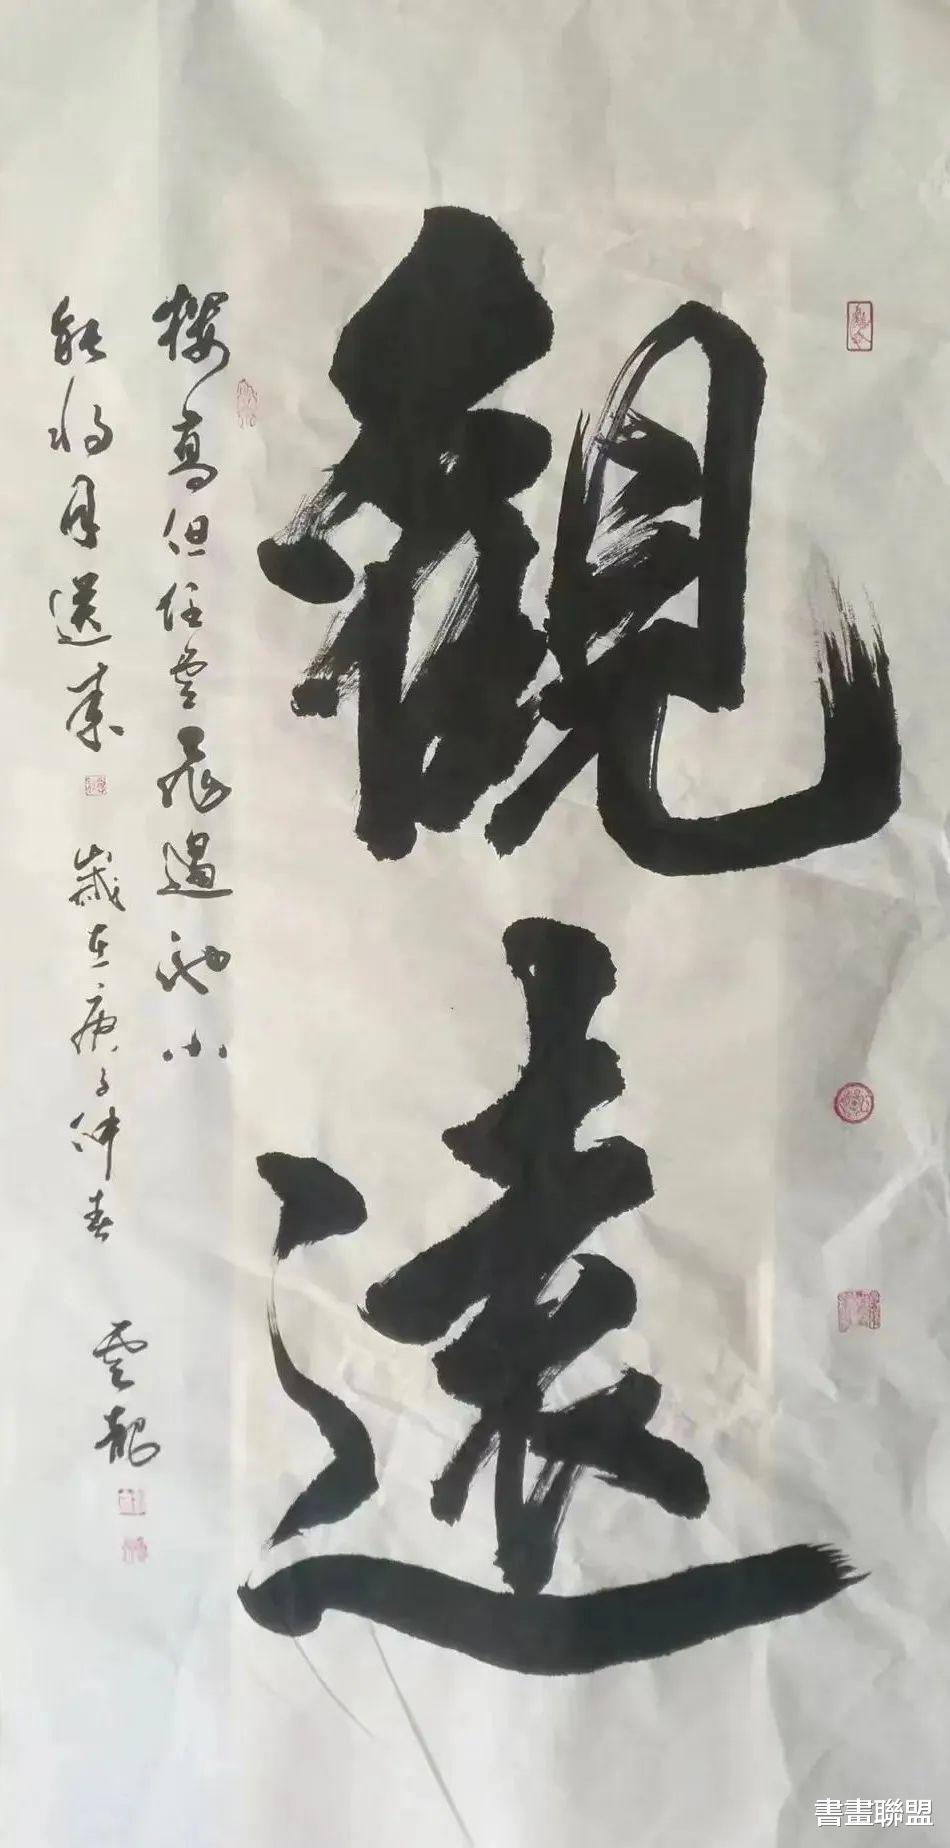 觀遠
樓高但任雲飛過池小
能將月送來
歲在庚子仲春
雲龍
書畫聯盟